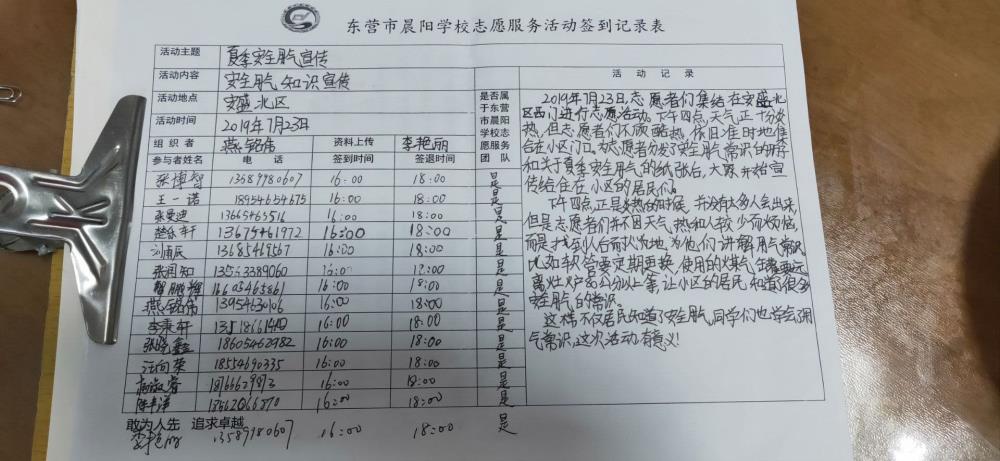 东营市晨阳学校志愿服务活动签到记录表
活动主题 夏季安全用气宣传
活动内容 安全用气知识宣传
活动地点 安盛北区
活动时间 2019年7月23日
组织者 燕铭伟 资料上传 李艳丽
参与者姓名 电话 签到时间 签退时间
是否属于东营市晨阳学校志愿服务团队
张博智 13589980607 16:00 18:00 是
王一诺 18954654675 16:00 18:00 是
张曼迪 13665465516 16:00 18:00 是
13675461972 16:00 18:00 是
刘浦辰 13685461567 16:00 18:00 是
张闻知 16:00 是
16:00 18:00 是
燕铭伟 16:00 18:00 是
李秉轩 16:00 18:00 是
张晓鑫 18605462982 16:00 18:00 是
汪向荣 18554690335 16:00 18:00 是
16:00 18:00 是
16:00 18:00 是
敢为人先 追求卓越
16:00 18:00 是
活动记录
2019年7月23日,志愿者们集结在安盛北
区西门进行志愿活动。下午四点,天气正十分炎
热,但志愿者们不顾酷热,依旧准时地集
合在小区门口。为志愿者分发安全用气常识的
和关于夏季安全用气的纸张后,大家开始宣
传给住在小区的居民们。
下午四点,正是炎热的时候,并没有太多人会出来,
但是志愿者们并不因天气热和人较少而烦恼,
而是找到人后耐心地为他们讲解用气常识,
比如软管要定期更换,使用的煤气罐要远
离灶火 公分以上等,让小区的居民知道了很多
安全用气的常识。
这样,不仅居民知道了安全用气,同学们也学会用
气常识,这次活动有意义!